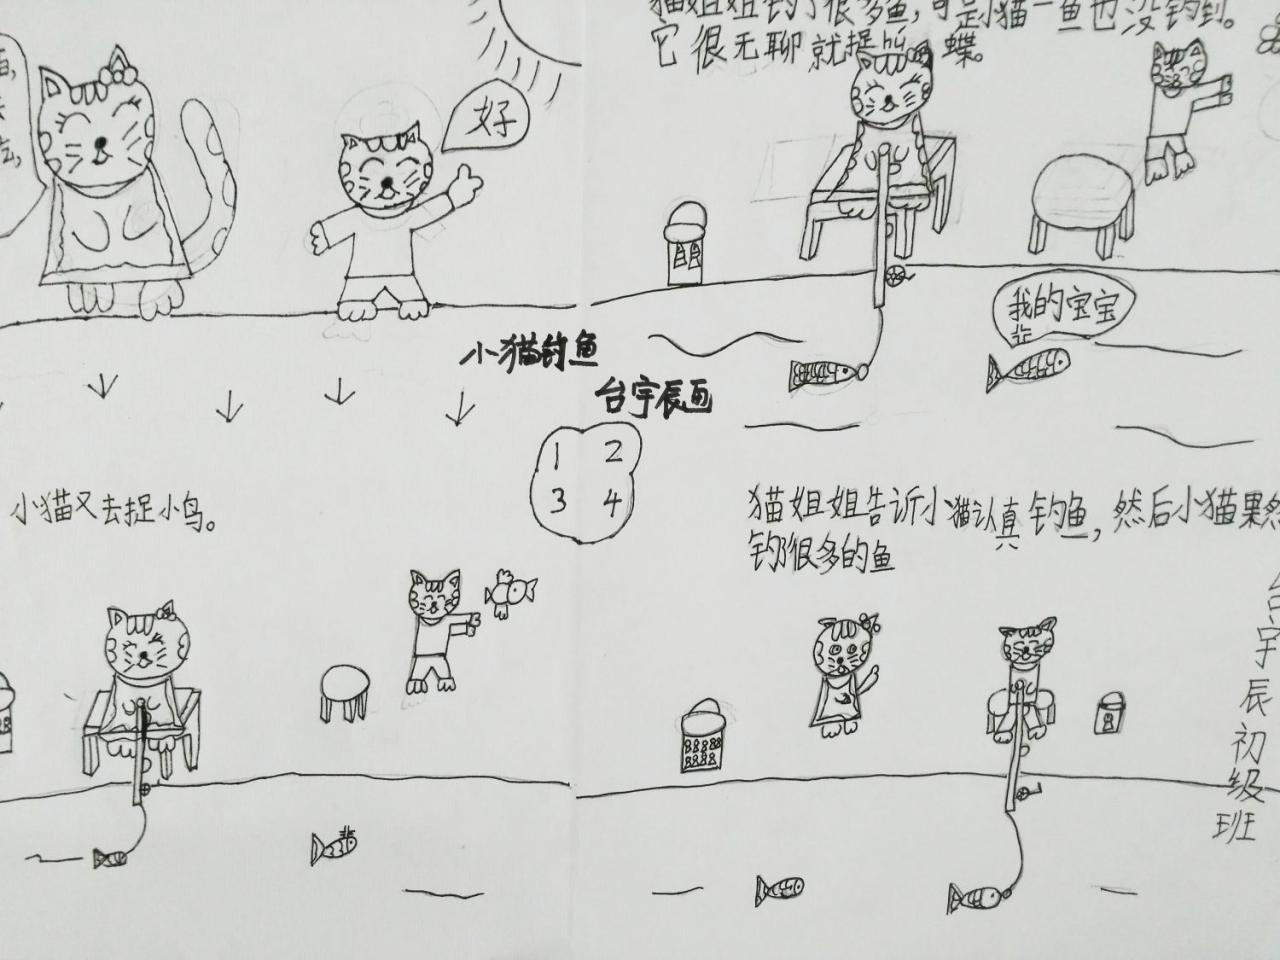 好
猫姐姐钓了很多鱼,可是小猫一鱼也没钓到。
它很无聊就捉hú蝶。
我的宝宝
小猫钓鱼
台宇辰画
1 2
3 4
小猫又去捉小鸟。
猫姐姐告诉小猫认真钓鱼,然后小猫果然
钓了很多的鱼
台宇辰初级班